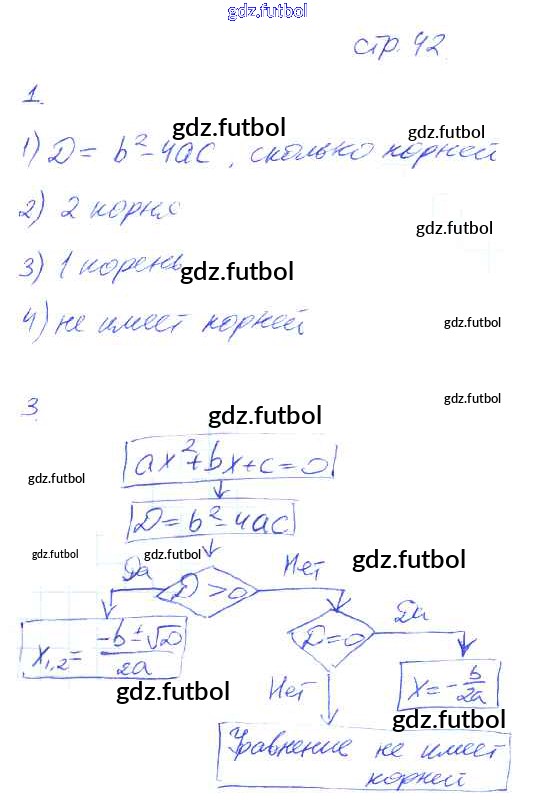 gdz.futbol
стр. 42
1.
gdz.futbol
gdz.futbol
1) D = b² - 4ac, сколько корней
2) 2 корня
gdz.futbol
3) 1 корень
gdz.futbol
4) не имеет корней
gdz.futbol
gdz.futbol
3
gdz.futbol
ax² + bx + c = 0
gdz.futbol
D = b² - 4ac
gdz.futbol
gdz.futbol
gdz.futbol
Да
Нет
D > 0
Да
D = 0
x₁,₂ = (-b ± √D)/2a
x = - b/2a
gdz.futbol
Нет
gdz.futbol
Уравнение не имеет
корней
gdz.futbol